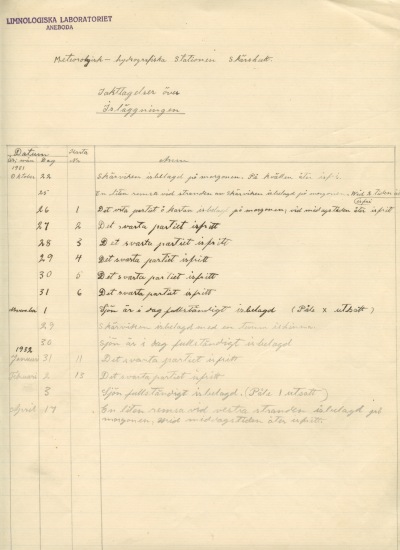 LIMNOLOGISKA LABORATORIET
ANEBODA
Meteorologisk-hydrografiska Stationen Skärshult.
Iakttagelser över
Isläggningen
Datum Karta
År, mån Dag Nr. Anm.
1931
Oktober 22 Skärviken isbelagd på morgonen. På kvällen åter isfri
25 En liten remsa vid stranden av Skärviken isbelagd på morgonen. Vid
isfri
26 1 Det vita partiet å kartan isbelagt på morgonen, vid middagstiden åter isfritt
27 2 Det svarta partiet isfritt
28 3 Det svarta partiet isfritt
29 4 Det svarta partiet isfritt
30 5 Det svarta partiet isfritt
31 6 Det svarta partiet isfritt
November 1 Sjön är i dag fullständigt isbelagd (Påle x utsatt)
29 Skärviken isbelagd med en tunn
30 Sjön är i dag fullständigt isbelagd
1932
Januari 31 11 Det svarta partiet isfritt
Februari 2 13 Det svarta partiet isfritt
3 Sjön fullständigt isbelagd. (Påle 1 utsatt)
April 17 En liten remsa vid västra stranden isbelagd på
morgonen. Vid middagstiden åter isfritt.